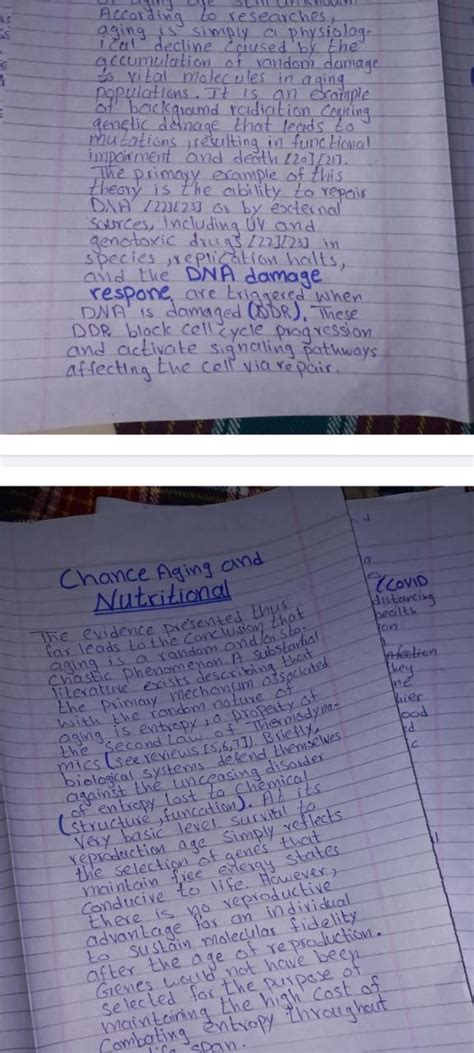 of aging are still unknown.
According to researches,
aging is simply a physiolog-
ical decline caused by the
accumulation of random damage
to vital molecules in aging
populations. It is an example
of background radiation causing
genetic demage that leads to
mutations, resulting in functional
impairment and death [20][21].
The primary example of this
theory is the ability to repair
DNA [22][23] or by external
sources, Including UV and
genotoxic drugs [22][23] in
species, replication halts,
and the DNA damage
respone, are triggered when
DNA is damaged (DDR). These
DDR block cell cycle progression
and activate signaling pathways
affecting the cell via repair.
Chance Aging and
Nutritional
The evidence presented thus
far leads to the conclusion that
aging is a random and/or sto-
chastic phenomenon. A substantial
literature exists describing that
the primary mechanism associated
with the random nature of
aging is entropy, a property of
the second Law of Thermodyna-
mics (see reviews [5,6,7]). Briefly,
biological systems defend themselves
against the unceasing disorder
of entropy Lost to Chemical
(structure, funcation). At its
very basic level survial to
reproduction age simply reflects
the selection of genes that
maintain free energy states
conducive to life. However,
there is no reproductive
advantage for an individual
to sustain molecular fidelity
after the age of reproduction.
Genes would not have been
selected for the purpose of
maintaining the high cost of
Combating entropy throughout
life span.
(COVID
distancing
health